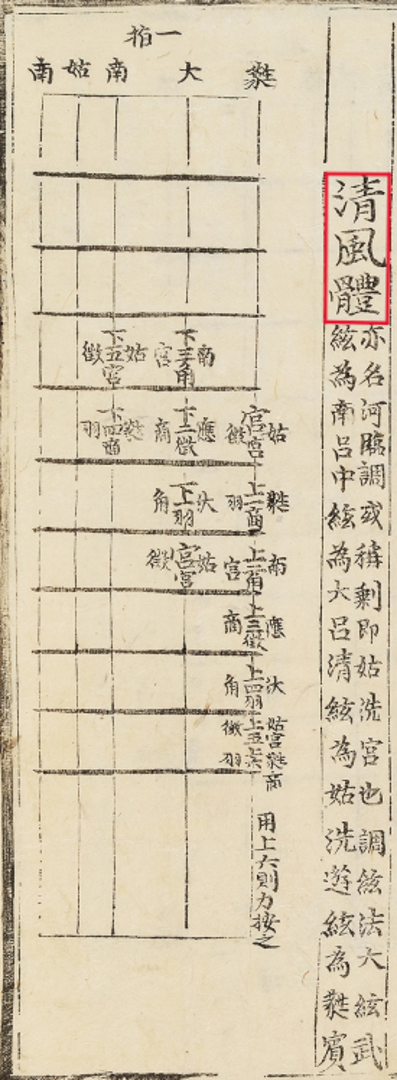 清風體
亦名河臨調或稱剩即姑洗宮也調絃法大絃武
絃為南呂中絃為大呂清絃為姑洗遊絃為蕤賓
一拍
蕤 大 南 姑 南
姑 宮宮 徵
蕤 上一商 羽
南 上二角 宮
應 上三徵 商
汏 上四羽 角
姑宮蕤商 上五上六 徵羽
用上六則力按之
南 下三角 宮
應 下二徵 商
汏 下一羽 角
姑 宮宮 徵
姑 下五宮 徵
蕤 下四商 羽